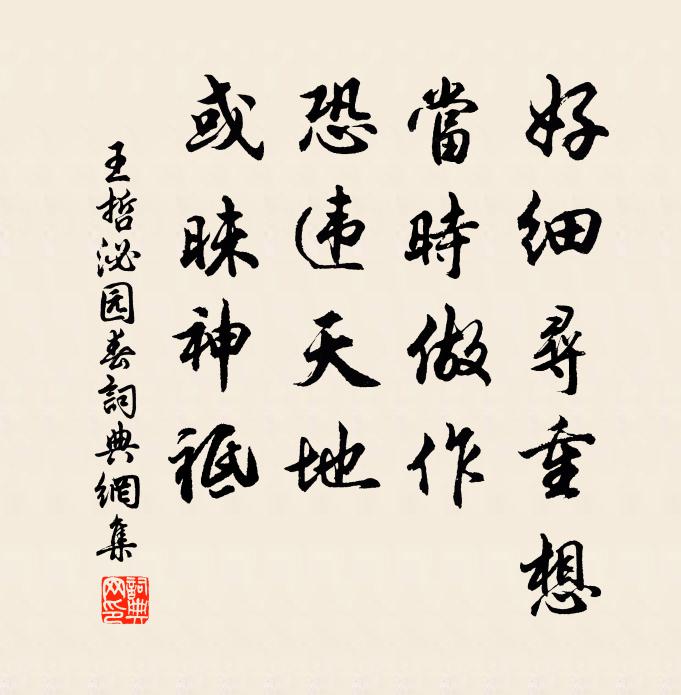 好细尋重想
當時做作
恐违天地
或昧神祗
王哲泌园春詞典網集
詞典网印